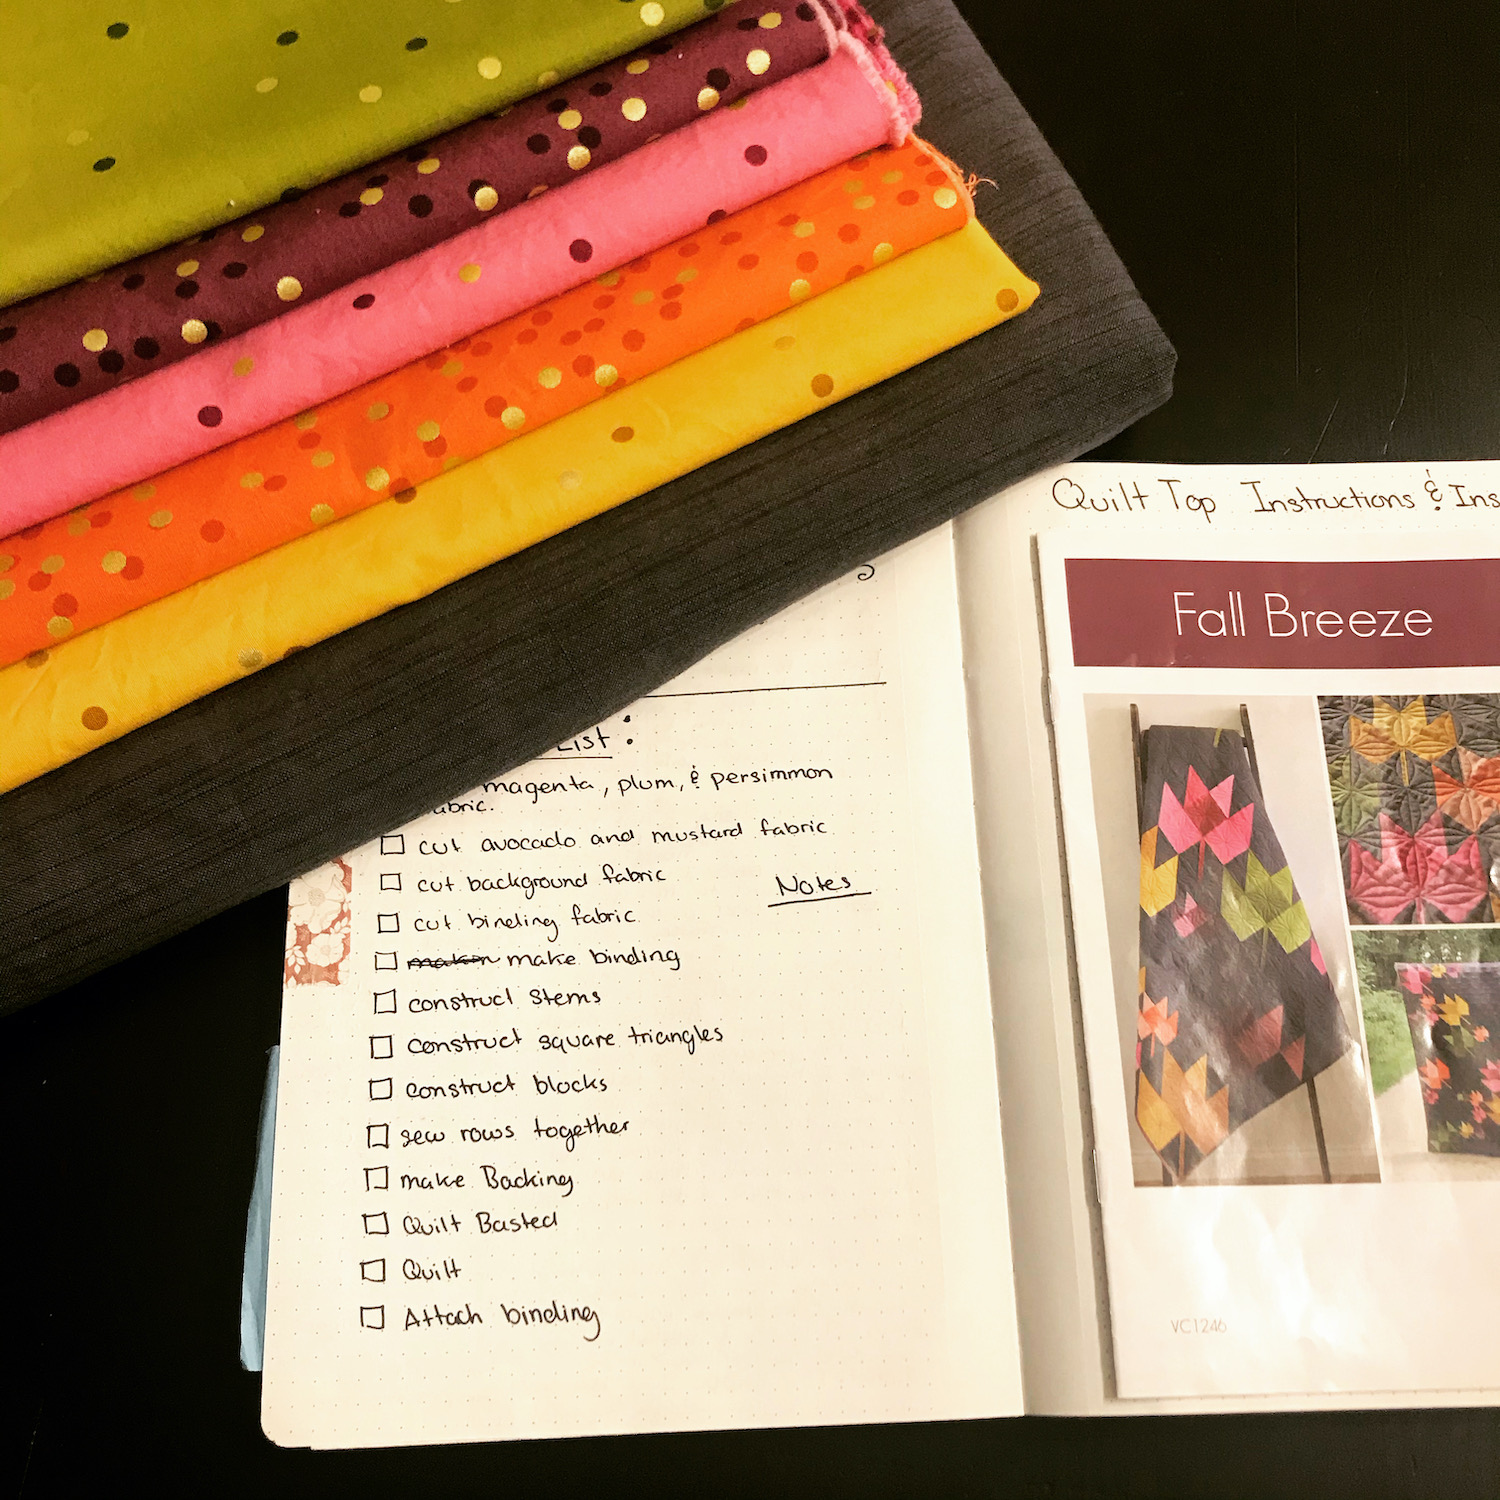 List :
magenta, plum, & persimmon
fabric.
cut avocado and mustard fabric
cut background fabric
cut binding fabric
make binding
construct stems
construct square triangles
construct blocks
sew rows together
make Backing
Quilt Basted
Quilt
Attach binding
Notes
Quilt Top Instructions & Ins
Fall Breeze
VC1246